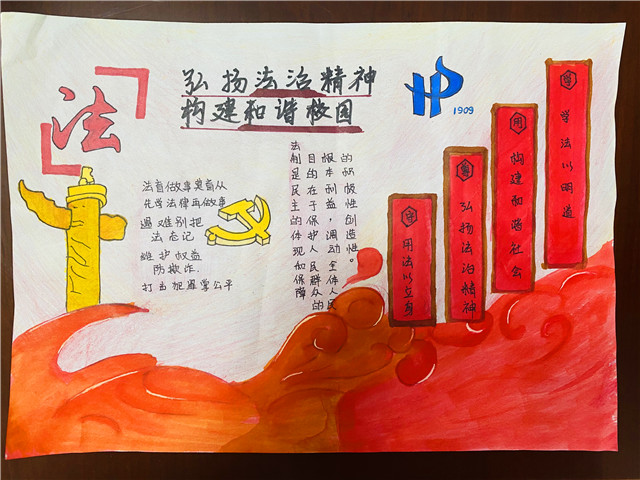 法
弘扬法治精神
构建和谐校园
HP
1909
法盲做事莫盲从
先学法律再做事
遇难别把
法忘记
维护权益
防欺诈.
打击犯罪 公平
法制是民主的体现和保障
目的在于保护人民群众的
根本利益,调动全体人民
的积极性创造性。
守
用法以立身
尊
弘扬法治精神
用
构建和谐社会
学
学法以明道